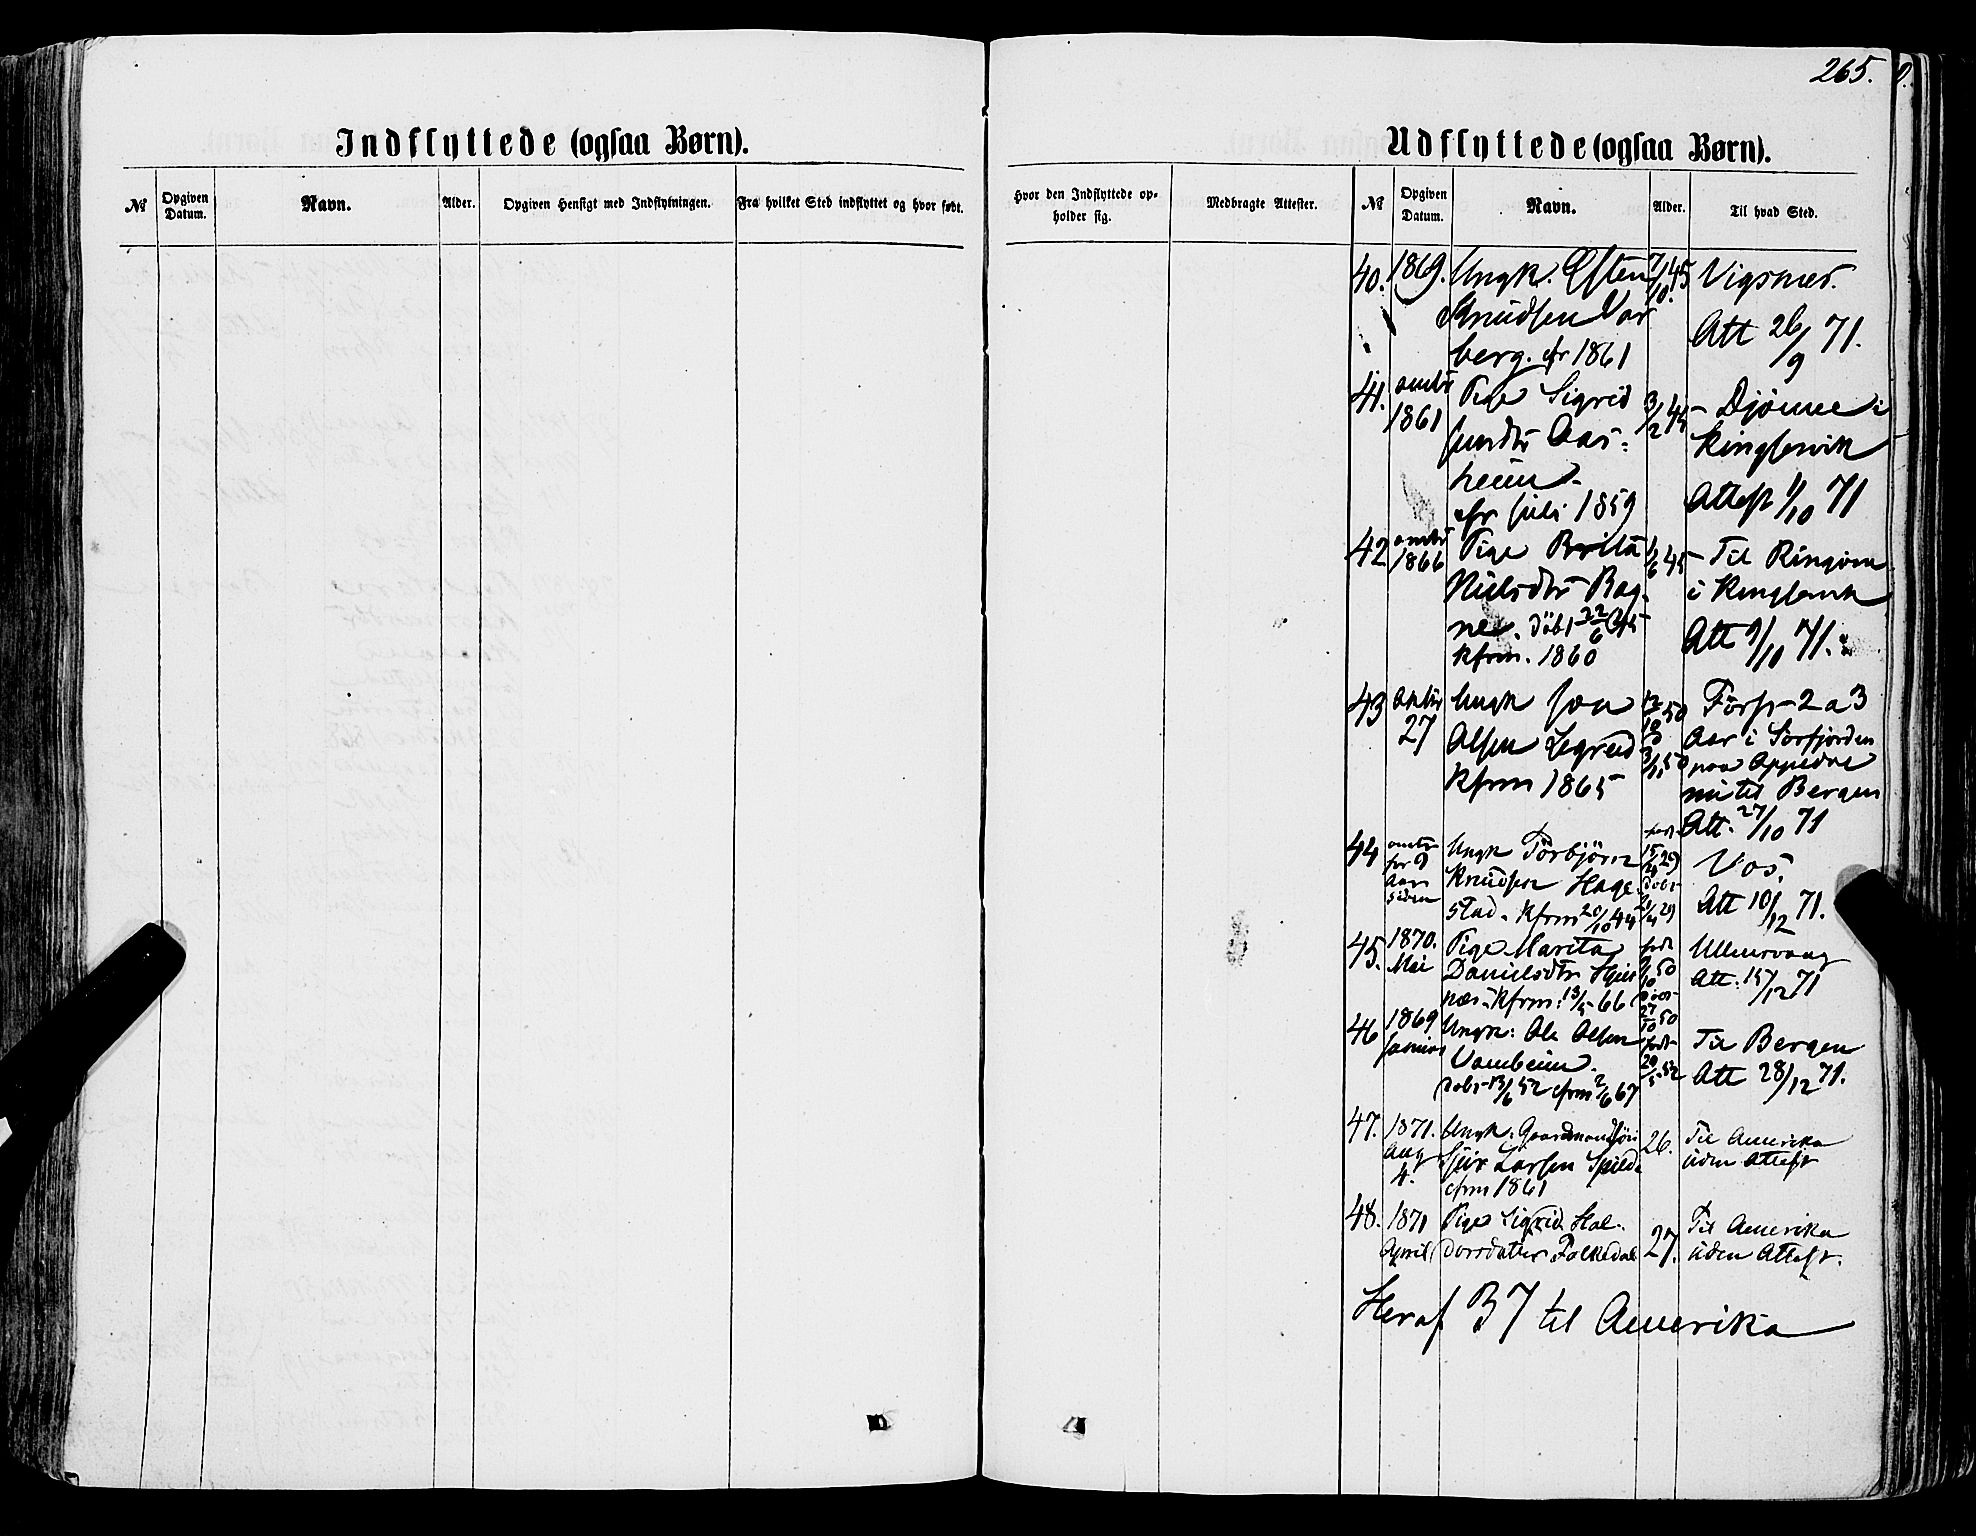 265.
Indflyttede (ogsaa Børn).
Udflyttede (ogsaa Børn).
№ Opgiven Datum. Navn. Alder. Opgiven Hensigt med Indflytningen. Fra hvilket Sted indflyttet og hvor født.
Hvor den Indflyttede opholder sig. Medbragte Attester. № Opgiven Datum. Navn. Alder. Til hvad Sted.
40. 1869. Ungk. Østen 7/10. 45 Vigsnæs.
Knudsen Var
berg. cfr 1861 Att 26/9 71.
41. omtr 1861 Pige Sigrid 3/2 45 - Djønne i
Aas: Kingservik
heim
cfr Juli 1859 Attest 1/10 71
42 omtr 1866 Pige Brita 1/6 45 - Til Ringøen
Nielsdtr Rag i Kingservik
nes. döbt 22/6 45 Att 9/10 71.
Kfrm. 1860
43 omtr 27 Ungk Jon 50 Först 2 a 3
Olsen Legreid Aar i Sörfjorden
Kfrm 1865 paa Appedal
nu til Bergen
Att. 27/10 71
44 omtr for 9 Aar siden Ungk Törbjörn 29 Vos.
Knudsen Hage
stad. Kfrm 20/10 44 Att 10/12 71.
45. 1870. Mai Pige Marita födt 50 Ullensvang
Danielsdtr
Kfrm: 13/5 66 27/10 50 Att: 15/12 71
46 1869 Ungk: Ole Olsen födt 20/5 52 Til Bergen
Vambheim.
döbt 13/6 52 cfrm 2/6 67 Att 28/12 71.
47. 1871. Aug 4. Ungk. Gaardmandssön 26. Til Amerika
Larsen Spilde uden Attest
cfrm 1861
48. 1871 April Pige Sigrid Hal- 27. Til Amerika
dorsdatter Folkedal uden Attest.
Heraf 37 til Amerika